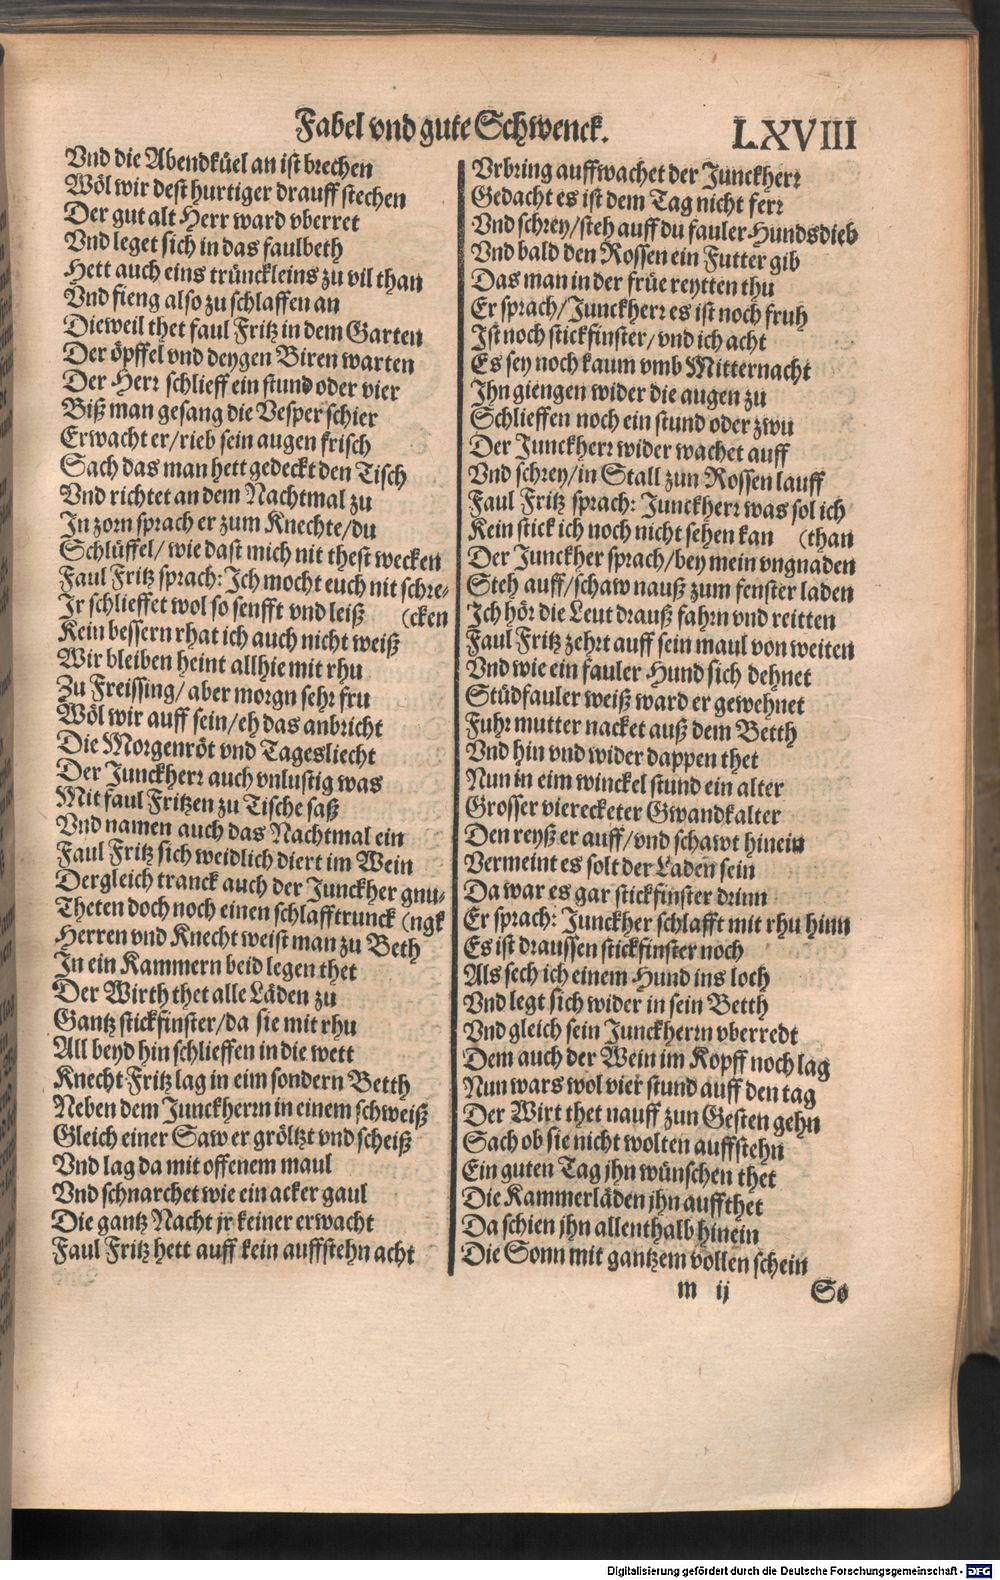 Fabel vnd gute Schwenck. LXVIII
Vnd die Abendküel an ist brechen
Wöl wir dest hurtiger drauff stechen
Der gut alt Herr ward vberret
Vnd leget sich in das faulbeth
Hett auch eins trünckleins zu vil than
Vnd fieng also zu schlaffen an
Dieweil thet faul Fritz in dem Garten
Der öpffel vnd deygen Biren warten
Der Herr schlieff ein stund oder vier
Biß man gesang die Vesper schier
Erwacht er/rieb sein augen frisch
Sach das man hett gedeckt den Tisch
Vnd richtet an dem Nachtmal zu
In zorn sprach er zum Knechte/du
Schlüffel/ wie dast mich nit thest wecken
Faul Fritz sprach: Ich mocht euch nit schre-
Ir schlieffet wol so senfft vnd leiß (cken
Kein bessern rhat ich auch nicht weiß
Wir bleiben heint allhie mit rhu
Zu Freissing/ aber morgn sehr fru
Wöl wir auff sein/eh das anbricht
Die Morgenröt vnd Tagesliecht
Der Junckherr auch vnlustig was
Mit faul Fritzen zu Tische saß
Vnd namen auch das Nachtmal ein
Faul Fritz sich weidlich diert im Wein
Dergleich tranck auch der Junckher gnu-
Theten doch noch einen schlafftrunck (ngk
Herren vnd Knecht weist man zu Beth
In ein Kammern beid legen thet
Der Wirth thet alle Läden zu
Gantz stickfinster/da sie mit rhu
All beyd hin schlieffen in die wett
Knecht Fritz lag in eim sondern Betth
Neben dem Junckherrn in einem schweiß
Gleich einer Saw er gröltzt vnd scheiß
Vnd lag da mit offenem maul
Vnd schnarchet wie ein acker gaul
Die gantz Nacht jr keiner erwacht
Faul Fritz hett auff kein auffstehn acht
Vrbring auffwachet der Junckherr
Gedacht es ist dem Tag nicht ferr
Vnd schrey/steh auff du fauler Hundsdieb
Vnd bald den Rossen ein Futter gib
Das man in der früe reytten thu
Er sprach/Junckherr es ist noch fruh
Ist noch stickfinster/vnd ich acht
Es sey noch kaum vmb Mitternacht
Ihn giengen wider die augen zu
Schlieffen noch ein stund oder zwu
Der Junckherr wider wachet auff
Vnd schrey/in Stall zun Rossen lauff
Faul Fritz sprach: Junckherr was sol ich
Kein stick ich noch nicht sehen kan (than
Der Junckher sprach/bey mein vngnaden
Steh auff/schaw nauß zum fenster laden
Ich hör die Leut drauß fahrn vnd reitten
Faul Fritz zehrt auff sein maul von weiten
Vnd wie ein fauler Hund sich dehnet
Stüdfauler weiß ward er gewehnet
Fuhr mutter nacket auß dem Betth
Vnd hin vnd wider dappen thet
Nun in eim winckel stund ein alter
Grosser vierecketer Gwandkalter
Den reyß er auff/vnd schawt hinein
Vermeint es solt der Laden sein
Da war es gar stickfinster drinn
Er sprach: Junckher schlafft mit rhu hinn
Es ist draussen stickfinster noch
Als sech ich einem Hund ins loch
Vnd legt sich wider in sein Betth
Vnd gleich sein Junckherrn vberredt
Dem auch der Wein im Kopff noch lag
Nun wars wol vier stund auff den tag
Der Wirt thet nauff zun Gesten gehn
Sach ob sie nicht wolten auffstehn
Ein guten Tag jhn wünschen thet
Die Kammerläden jhn auffthet
Da schien jhn allenthalb hinein
Die Sonn mit gantzem vollen schein
m ij So
Digitalisierung gefördert durch die Deutsche Forschungsgemeinschaft - DFG